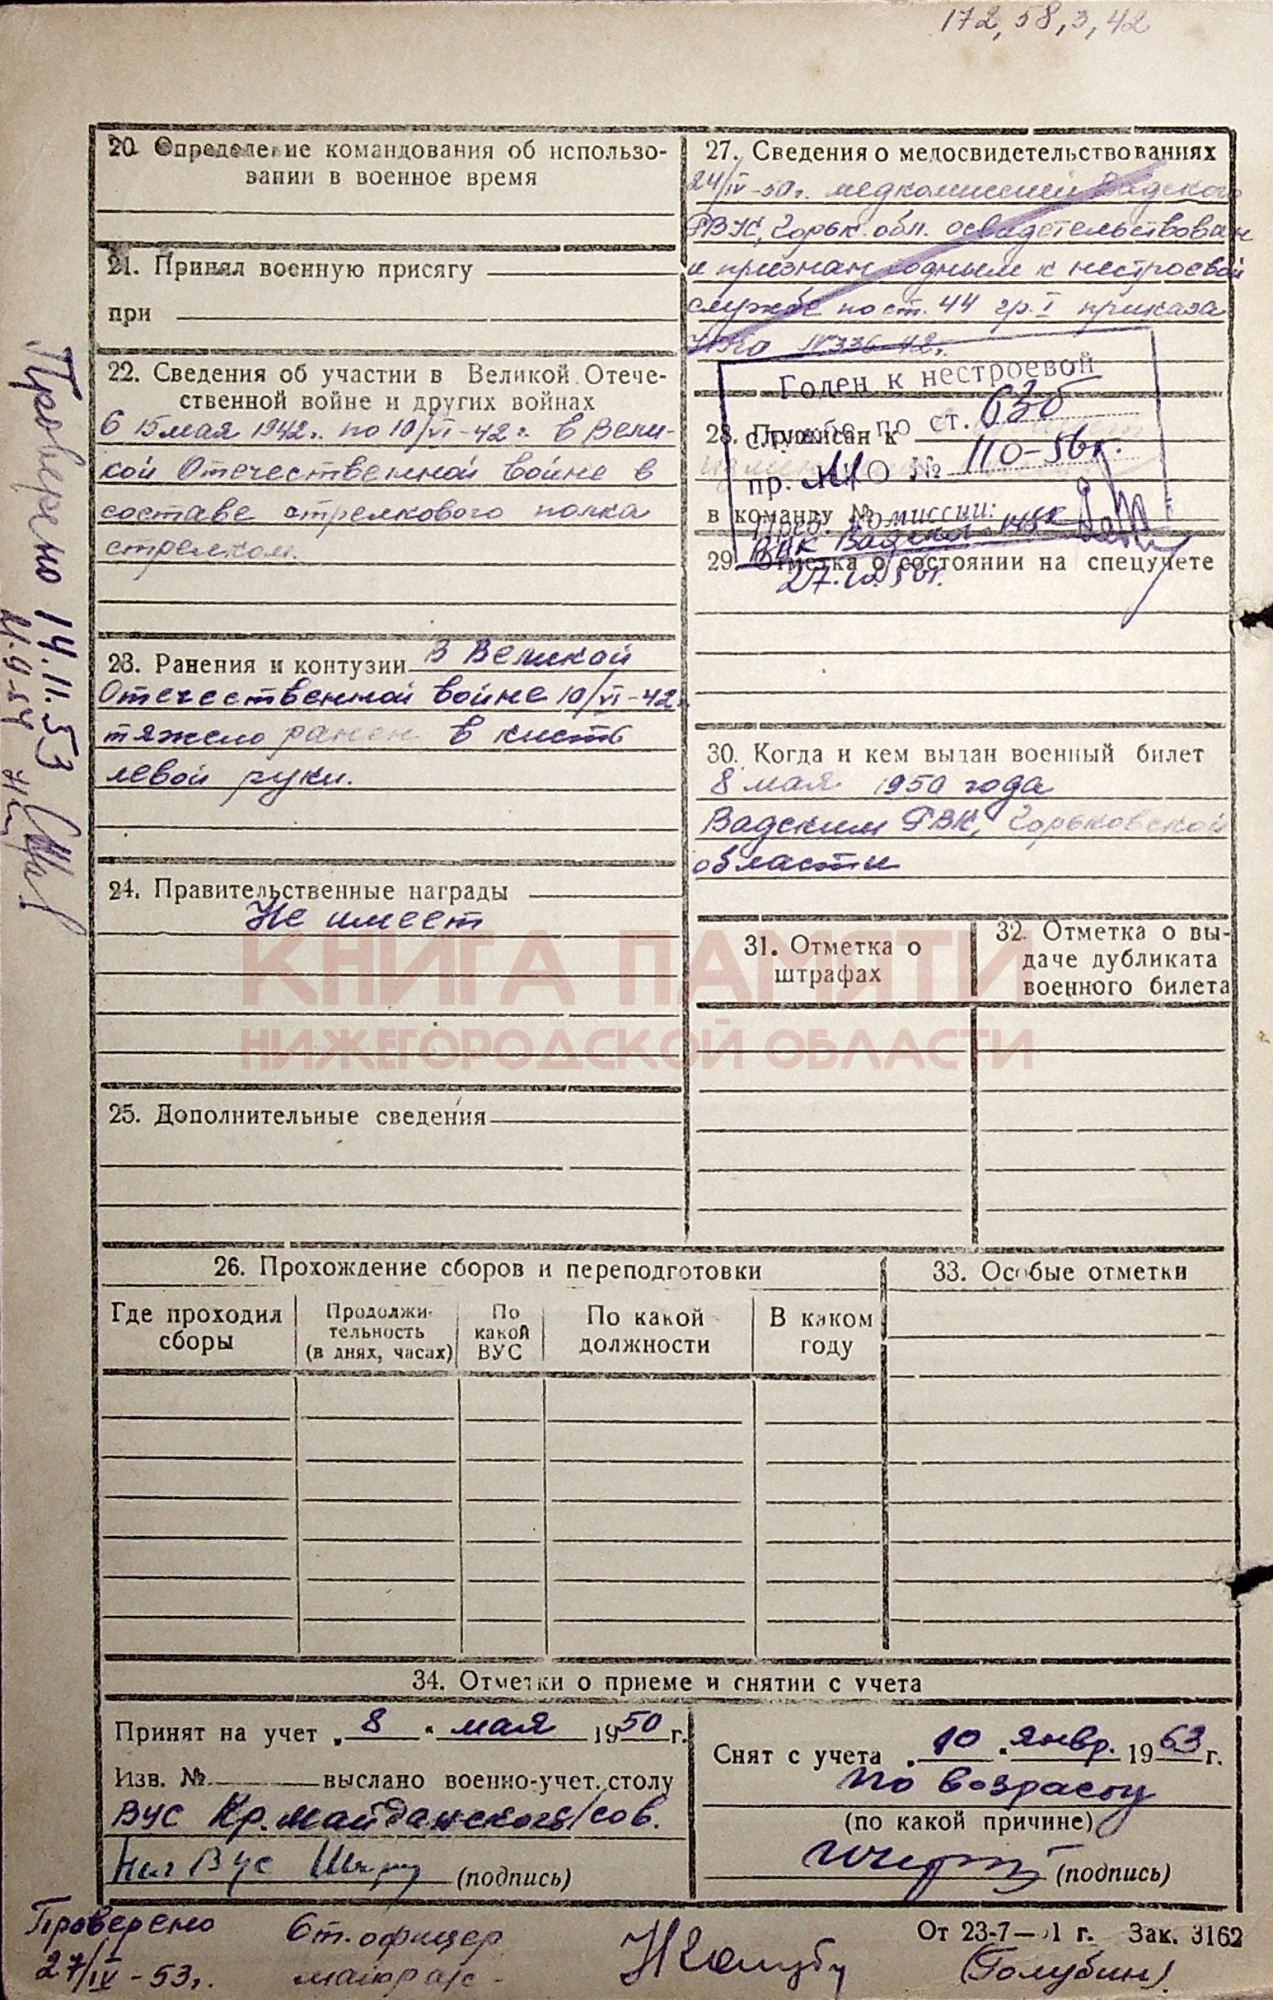 172, 58, 3, 42
20. Определение командования об использо-
вании в военное время
21. Принял военную присягу
при
22. Сведения об участии в Великой Отече-
ственной войне и других войнах
С 15 мая 1942 г. по 10/VI-42 г. в Вели-
кой Отечественной войне в
составе стрелкового полка
стрелком.
23. Ранения и контузии В Великой
Отечественной войне 10/VI-42 г.
тяжело ранен в кисть
левой руки.
24. Правительственные награды
Не имеет
25. Дополнительные сведения
27. Сведения о медосвидетельствованиях
24/IV-50г. медкомиссией Вадского
РВК, Горьк. обл. освидетельствован
и признан годным к нестроевой
службе по ст. 44 гр. I приказа
НКО №336-42г.
Годен к нестроевой
службе по ст. 63б
пр. МО № 110-56г.
Пред. комиссии:
ВЦК Вадск
27.12.56г.
28. Приписан к
в команду №
29. Отметка о состоянии на спецучете
30. Когда и кем выдан военный билет
8 мая 1950 года
Вадским РВК, Горьковской
области
31. Отметка о
штрафах
32. Отметка о вы-
даче дубликата
военного билета
КНИГА ПАМЯТИ
НИЖЕГОРОДСКОЙ ОБЛАСТИ
26. Прохождение сборов и переподготовки
Где проходил
сборы
Продолжи-
тельность
(в днях, часах)
По
какой
ВУС
По какой
должности
В каком
году
33. Особые отметки
34. Отметки о приеме и снятии с учета
Принят на учет „8" мая 1950 г.
Изв. № выслано военно-учет. столу
ВУС Кр. Майданского с/сов.
Нач ВУС (подпись)
Снят с учета „10" янвр. 1963 г.
по возрасту
(по какой причине)
(подпись)
Проверено 14.11.53
Проверено
27/IV-53г.
Ст. офицер
майор а/с -
От 23-7— 1 г. Зак. 3162
(Голубин)